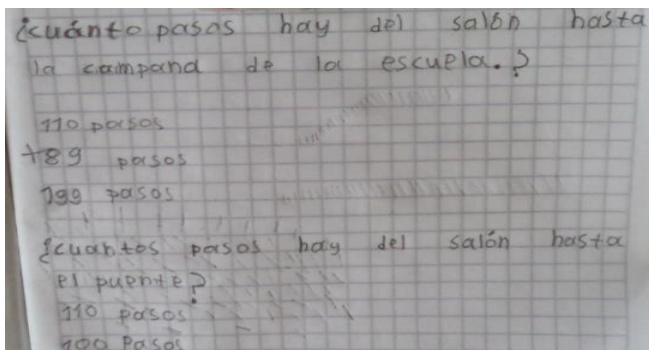 ¿cuánto pasos hay del salón hasta
la campana de la escuela.?
110 pasos
+89 pasos
199 pasos
¿cuantos pasos hay del salón hasta
el puente?
110 pasos
100 Pasos